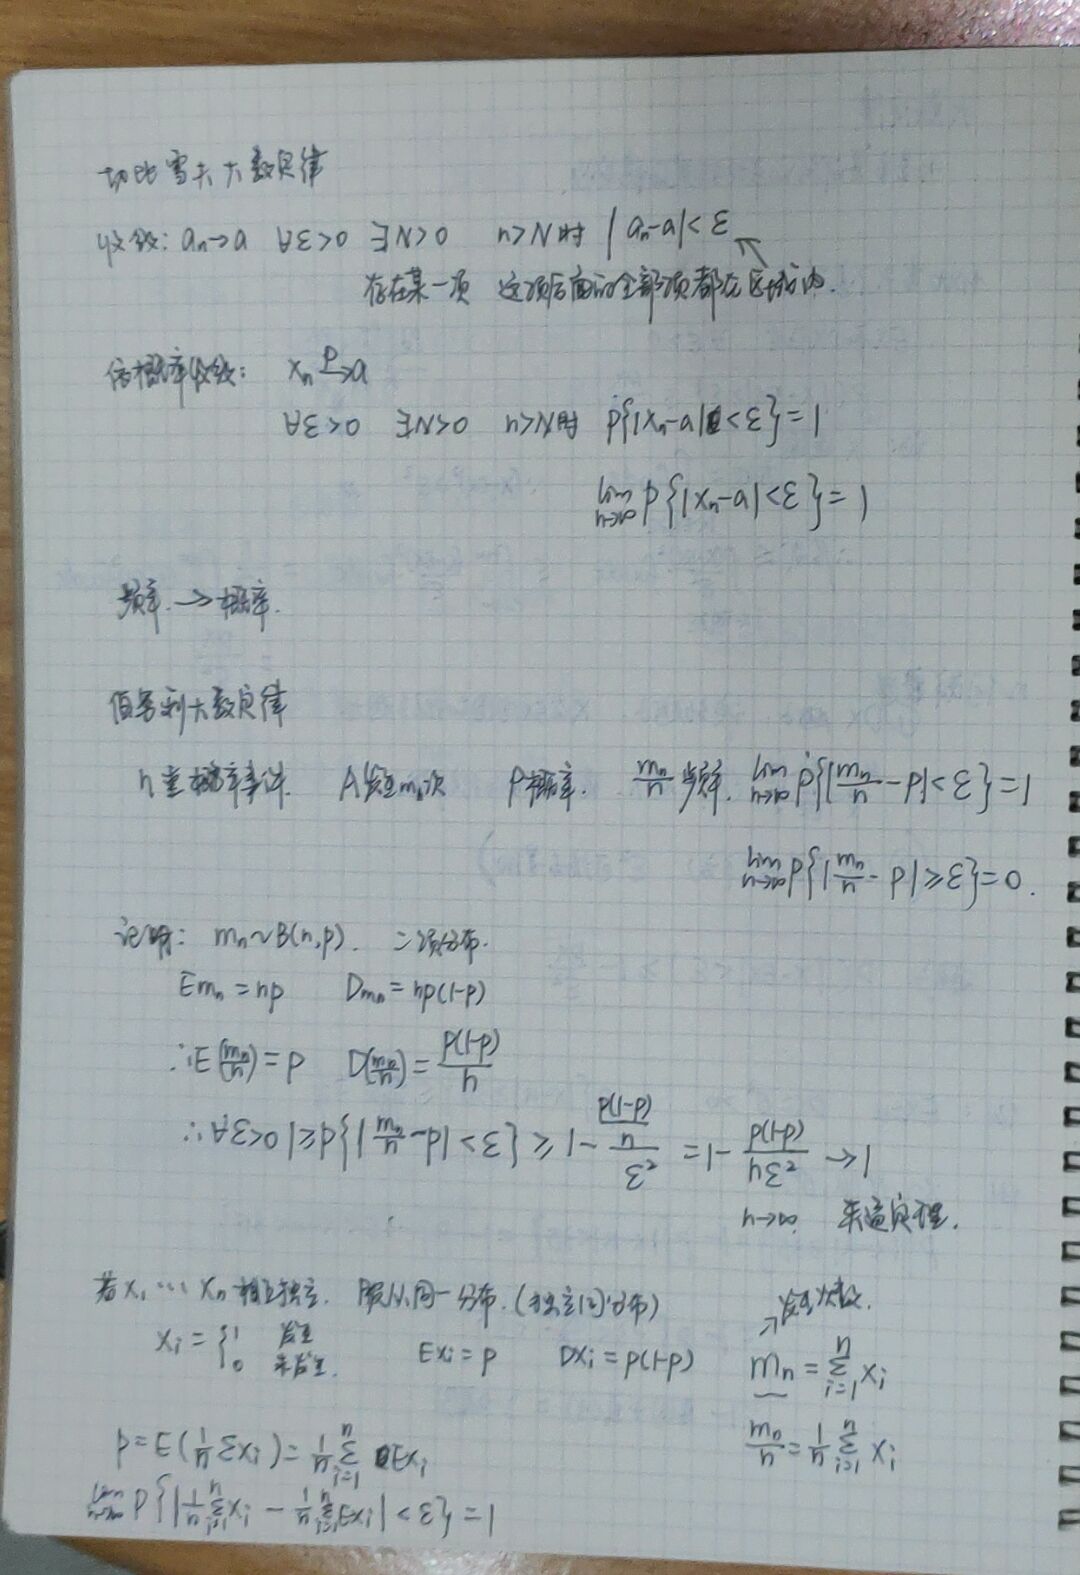 切比雪夫大数定律
收敛: aₙ→a ∀ε>0 ∃N>0 n>N时 |aₙ-a|<ε
存在某一项 这项后面的全部项都在区域内.
依概率收敛: xₙ P→ a
∀ε>0 ∃N>0 n>N时 P{|xₙ-a|<ε}=1
lim n→∞ P{|xₙ-a|<ε}=1
频率.→概率.
伯努利大数定律
n重概率事件. A发生mₙ次 P概率. mₙ/n 频率. lim n→∞ P{|mₙ/n - p|<ε}=1
lim n→∞ P{|mₙ/n - p|≥ε}=0.
证明: mₙ~B(n,p). 二项分布.
Emₙ=np Dmₙ=np(1-p)
∴E(mₙ/n)=p D(mₙ/n)=p(1-p)/n
∴∀ε>0 1≥P{|mₙ/n-p|<ε}≥1-(p(1-p)/n)/ε²=1-p(1-p)/nε²→1
n→∞. 夹逼定理.
若x₁…xₙ相互独立. 服从同一分布.(独立同分布) 发生次数.
xᵢ={1 发生 0 未发生. Exᵢ=p Dxᵢ=p(1-p) mₙ=∑ⁿᵢ₌₁xᵢ
p=E(1/n∑xᵢ)=1/n∑ⁿᵢ₌₁Exᵢ mₙ/n=1/n∑ⁿᵢ₌₁xᵢ
lim n→∞ P{|1/n∑ⁿᵢ₌₁xᵢ-1/n∑ⁿᵢ₌₁Exᵢ|<ε}=1